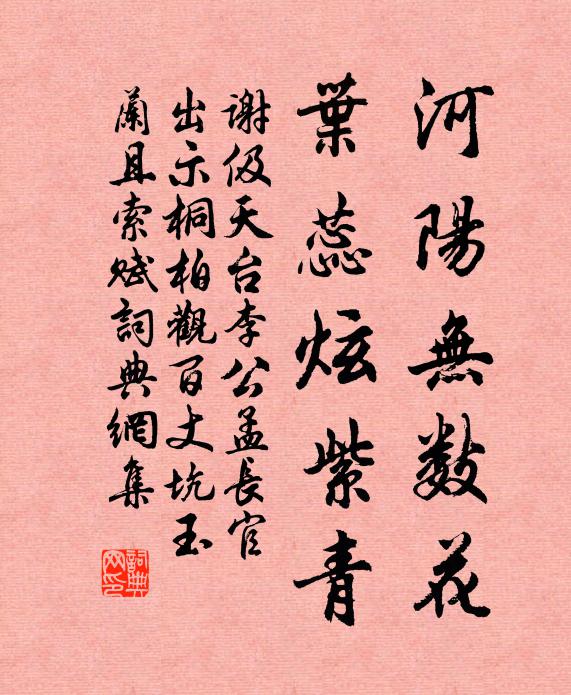 河陽無數花
葉蕊炫紫青
謝伋天台李公孟長官
出示桐柏觀百丈坑玉
蘭且索賦詞典網集
詞典網印